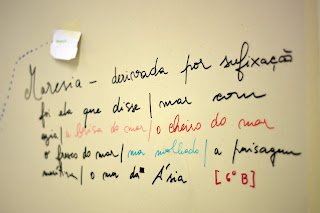 Maresia – derivada por sufixação
foi ela que disse / mar com
azia / a brisa do mar / o cheiro do mar
o fresco do mar / mar molhado / a paisagem
marítima / o mar da Ásia [6º B]